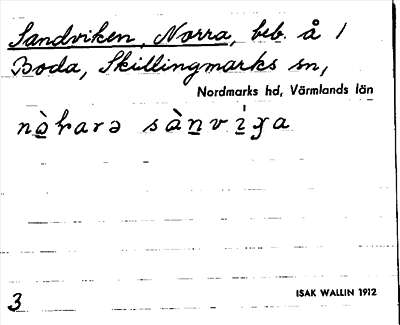 Sandviken, Norra, beb. å 1
Boda, Skillingmarks sn,
Nordmarks hd, Värmlands län
3
ISAK WALLIN 1912